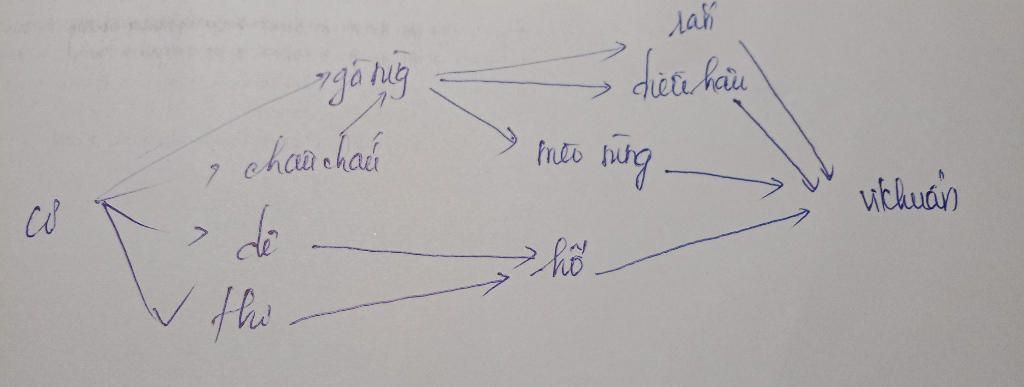 rắn
gà rừng
diều hâu
châu chấu
mèo rừng
cỏ
vi khuẩn
dê
hổ
thỏ